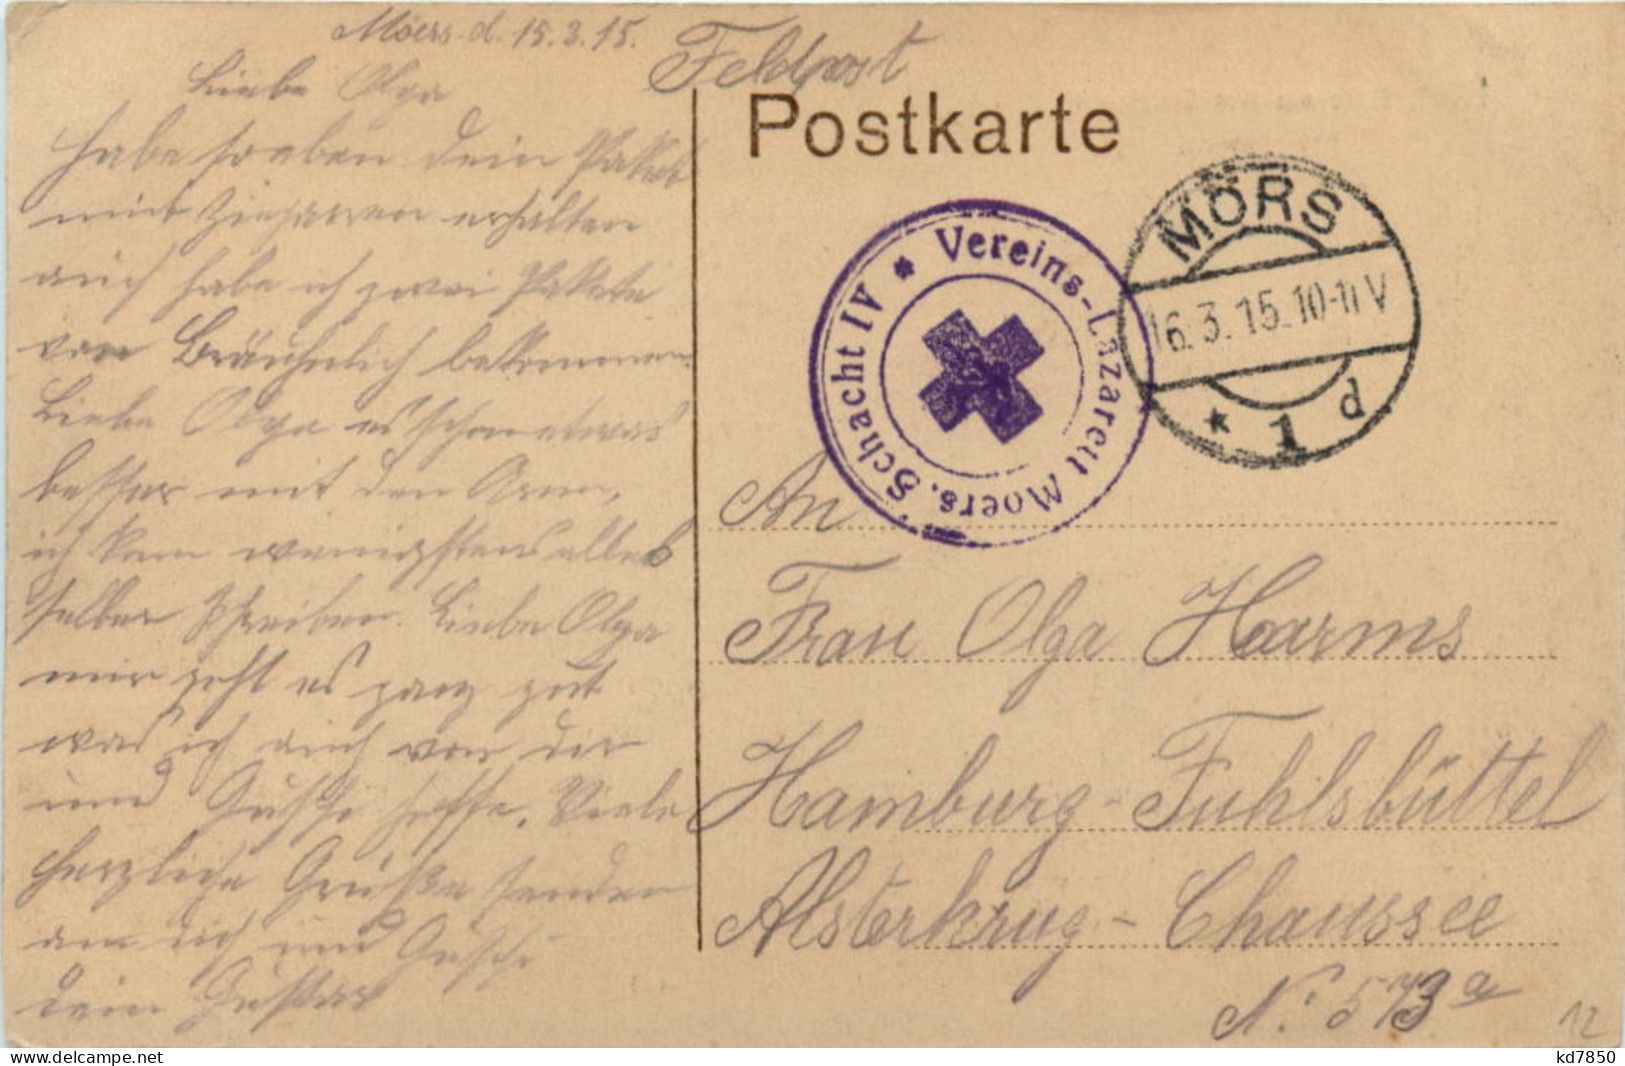 Moers d. 15.3.15.
Feldpost
Liebe Olga
Postkarte
habe soeben dein Paket
mit Ziegarren erhalten
auch habe ich zwei Pakete
von bekommen.
Liebe Olga es schon etwas
besser mit den Arm,
ich kann wenigstens alles
selber schreiben. Liebe Olga
mir geht es ganz gut
was ich auch von dir
und hoffe. Viele
herzliche Grüße senden
an dich und
dein Gustav
Vereins-Lazarett Moers. Schacht IV *
MÖRS
16.3.15.10-11V
* 1 d
An
Frau Olga Harms
Hamburg-Fuhlsbüttel
Alsterkrug-Chaussee
N: 573a
12
kd7850